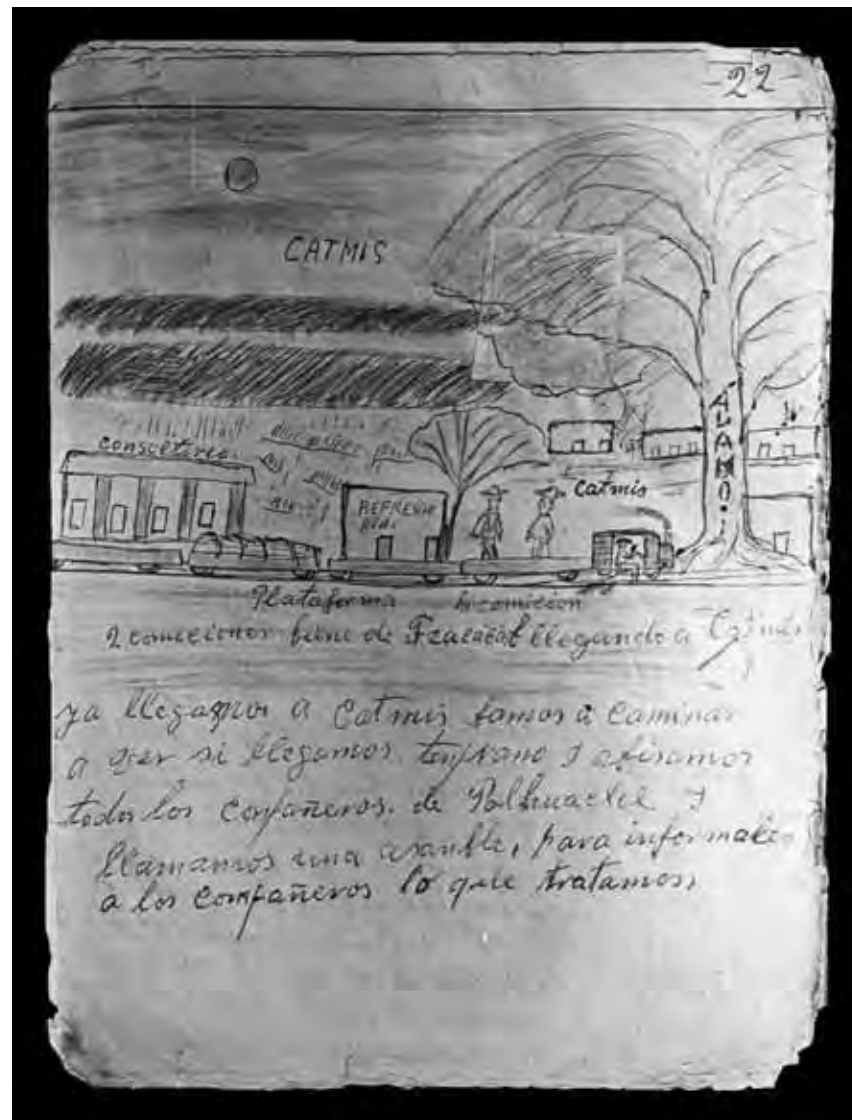 -22-
CATMIS
consultorio.
ALAMO.
REFRESQ
catmis
Plataforma la comicion
2 comiciones biene de llegando a Catmis
ya llegamos a Catmis bamos a caminar
a ver si llegamos temprano y abisamos
todos los compañeros. de y
llamamos una asamble, para informales
a los compañeros lo que tratamos